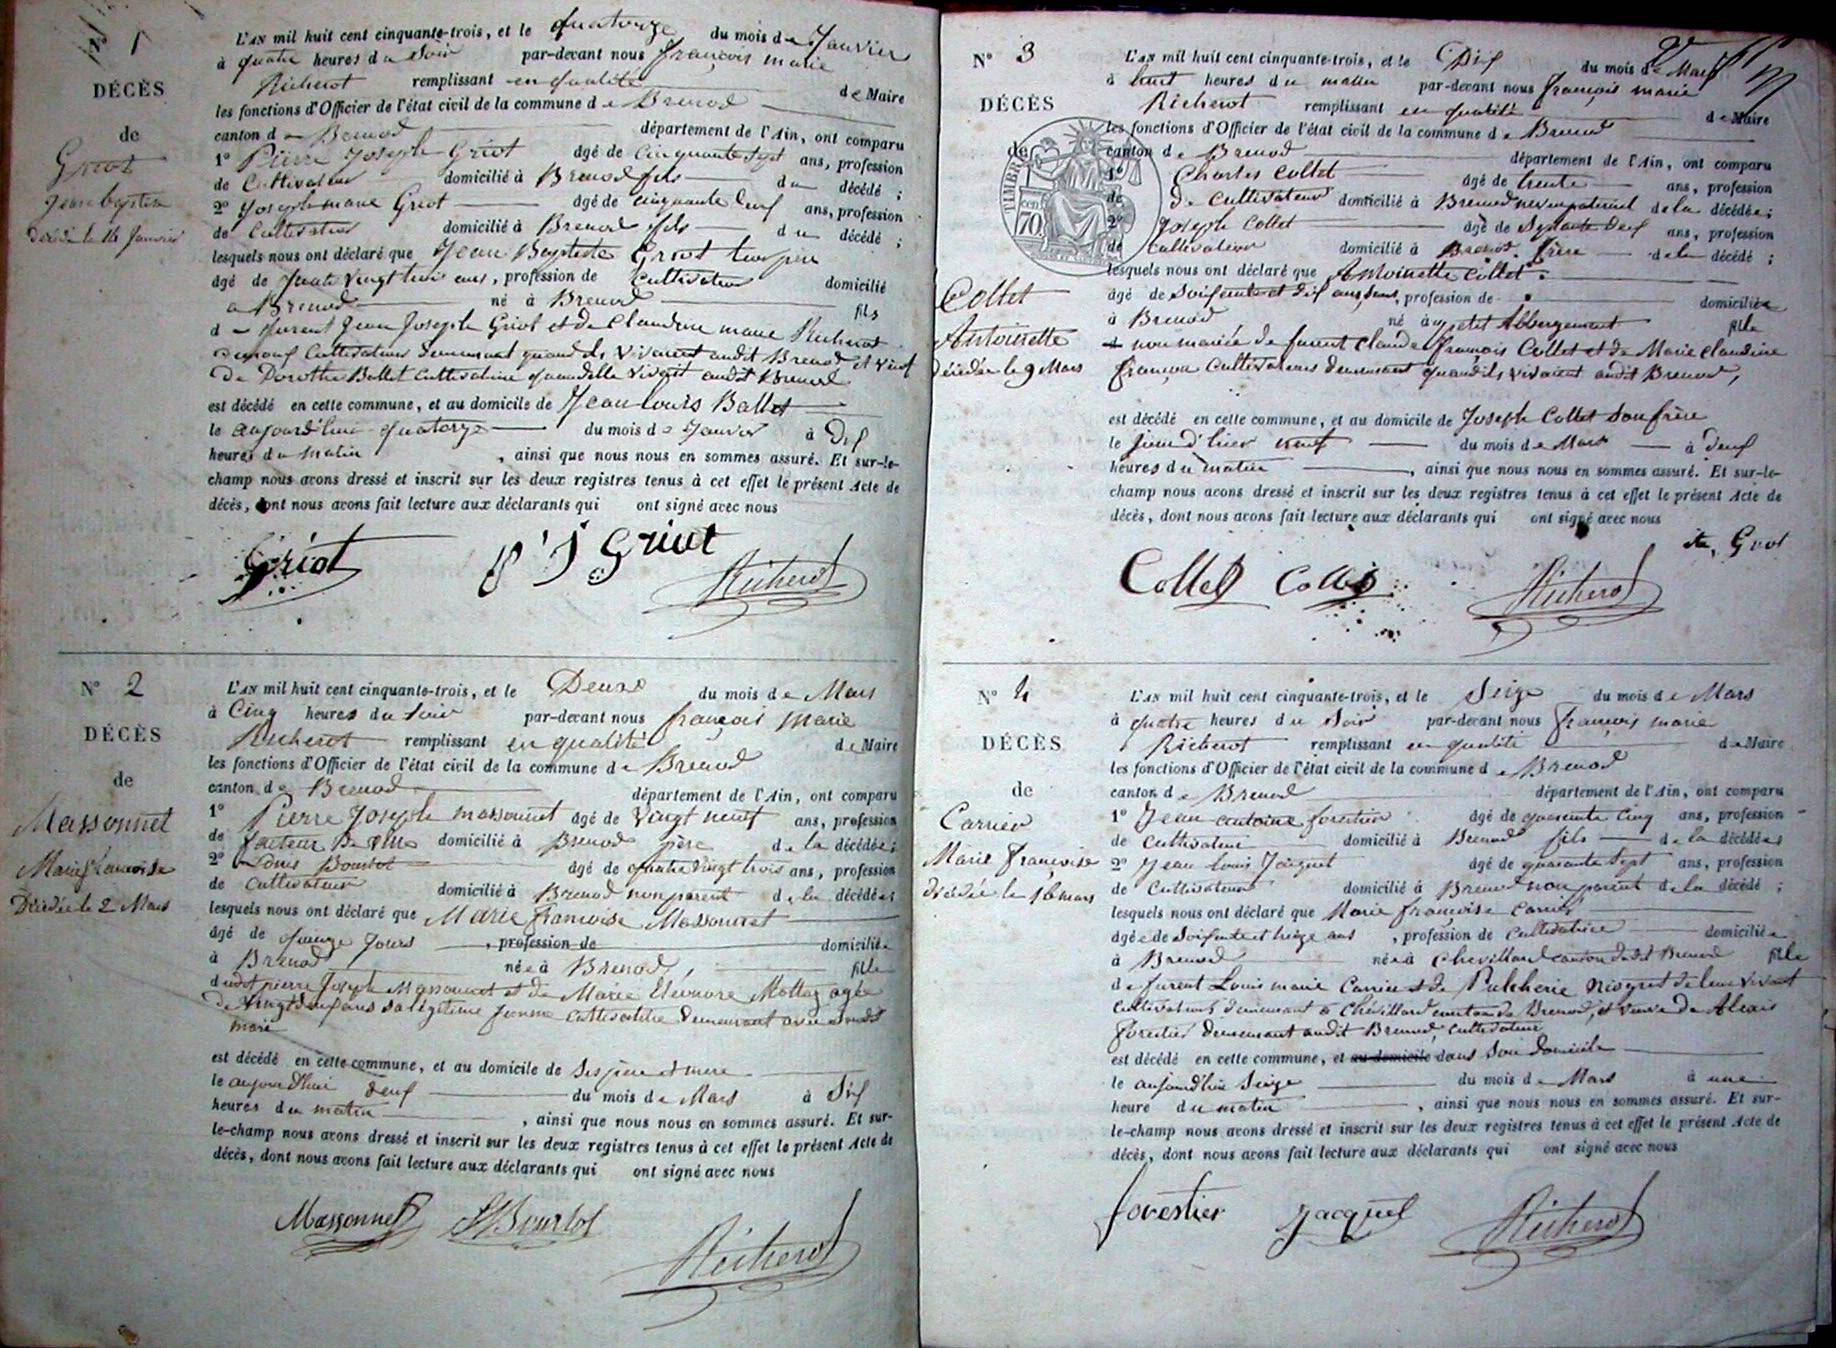 N° 1
DÉCÈS
de
Griot
Jean baptiste
Décédé le 14 Janvier
L'AN mil huit cent cinquante-trois, et le quatorze du mois de Janvier
à quatre heures du Soir par-devant nous françois marie
Richerot remplissant en qualité de Maire
les fonctions d'Officier de l'état civil de la commune de Brenod
canton de Brenod département de l'Ain, ont comparu
1° Pierre Joseph Griot âgé de Cinquante Sept ans, profession
de Cultivateur domicilié à Brenod fils du décédé ;
2° Joseph marie Griot âgé de cinquante deux ans, profession
de Cultivateur domicilié à Brenod fils du décédé ;
lesquels nous ont déclaré que Jean Baptiste Griot leur père
âgé de quatre vingt trois ans, profession de Cultivateur domicilié
à Brenod né à Brenod fils
de furent Jean Joseph Griot et de Claudine marie Richerot
Cultivateurs demeurant quand ils vivaient audit Brenod et veuf
de Dorothée Ballet cultivatrice quand elle vivait audit Brenod
est décédé en cette commune, et au domicile de Jean Louis Ballet
le aujourd'hui quatorze du mois de Janvier à Dix
heures du matin, ainsi que nous nous en sommes assuré. Et sur-le-
champ nous avons dressé et inscrit sur les deux registres tenus à cet effet le présent Acte de
décès, dont nous avons fait lecture aux déclarants qui ont signé avec nous
Griot P J Griot Richerot
N° 2
DÉCÈS
de
Massonnet
Marie françoise
Décédée le 2 Mars
L'AN mil huit cent cinquante-trois, et le Deux du mois de Mars
à Cinq heures du Soir par-devant nous françois marie
Richerot remplissant en qualité de Maire
les fonctions d'Officier de l'état civil de la commune de Brenod
canton de Brenod département de l'Ain, ont comparu
1° Pierre Joseph massonnet âgé de vingt neuf ans, profession
de facteur domicilié à Brenod père de la décédée ;
2° Louis Bourbot âgé de quatre vingt trois ans, profession
de Cultivateur domicilié à Brenod non parent de la décédée ;
lesquels nous ont déclaré que Marie françoise Massonnet
âgé de quinze Jours, profession de domiciliée
à Brenod née à Brenod, fille
dudit pierre Joseph Massonnet et de Marie Eléonore Mottaz agée
de vingt deux ans sa légitime femme cultivatrice demeurant avec sondit
mari
est décédé en cette commune, et au domicile de Ses père et mère
le aujourd'hui deux du mois de Mars à Dix
heures du matin, ainsi que nous nous en sommes assuré. Et sur-
le-champ nous avons dressé et inscrit sur les deux registres tenus à cet effet le présent Acte de
décès, dont nous avons fait lecture aux déclarants qui ont signé avec nous
Massonnet Bourbot
Richerot
N° 3
DÉCÈS
de
TIMBRE
70
Collet
Antoinette
décédée le 9 Mars
L'AN mil huit cent cinquante-trois, et le Dix du mois de Mars
à huit heures du matin par-devant nous françois marie
Richerot remplissant en qualité de Maire
les fonctions d'Officier de l'état civil de la commune de Brenod
canton de Brenod département de l'Ain, ont comparu
1° Charles Collet âgé de trente ans, profession
de de Cultivateur domicilié à Brenod neveu paternel de la décédée ;
2° Joseph Collet âgé de Septante deux ans, profession
de Cultivateur domicilié à Brenod. frère de la décédé ;
lesquels nous ont déclaré que Antoinette Collet
âgé de Soixante et dix ans, profession de domiciliée
à Brenod né à petit Abbergement fille
non mariée de furent Claude françois Collet et de Marie Claudine
françon Cultivateurs demeurant quand ils vivaient audit Brenod,
est décédé en cette commune, et au domicile de Joseph Collet Son frère
le Jour d'hier neuf du mois de Mars à deux
heures du matin, ainsi que nous nous en sommes assuré. Et sur-le-
champ nous avons dressé et inscrit sur les deux registres tenus à cet effet le présent Acte de
décès, dont nous avons fait lecture aux déclarants qui ont signé avec nous
Griot
Collet Collet Richerot
N° 4
DÉCÈS
de
Carrier
Marie françoise
décédée le 16 mars
L'AN mil huit cent cinquante-trois, et le Seize du mois de Mars
à quatre heures du Soir par-devant nous françois marie
Richerot remplissant en qualité de Maire
les fonctions d'Officier de l'état civil de la commune de Brenod
canton de Brenod département de l'Ain, ont comparu
1° Jean antoine forestier âgé de quarante cinq ans, profession
de Cultivateur domicilié à Brenod fils de la décédée ;
2° Jean Louis Jacquet âgé de quarante Sept ans, profession
de Cultivateur domicilié à Brenod non parent de la décédé ;
lesquels nous ont déclaré que Marie françoise Carrier
âgée de Soixante et treize ans, profession de Cultivatrice domiciliée
à Brenod née à Chevillard canton dudit Brenod fille
de furent Louis marie Carrier et de Pulcherie Nisquet de leur vivant
cultivateurs demeurant à Chevillard canton de Brenod, et veuve de Alexis
forestier demeurant audit Brenod, cultivateur
est décédé en cette commune, et au domicile dans Son domicile
le aujourd'hui Seize du mois de Mars à une
heure du matin, ainsi que nous nous en sommes assuré. Et sur-
le-champ nous avons dressé et inscrit sur les deux registres tenus à cet effet le présent Acte de
décès, dont nous avons fait lecture aux déclarants qui ont signé avec nous
forestier Jacquet Richerot